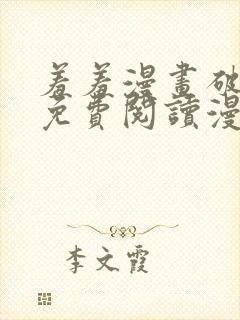 羞羞漫畫破
免費閱讀漫
李文霞